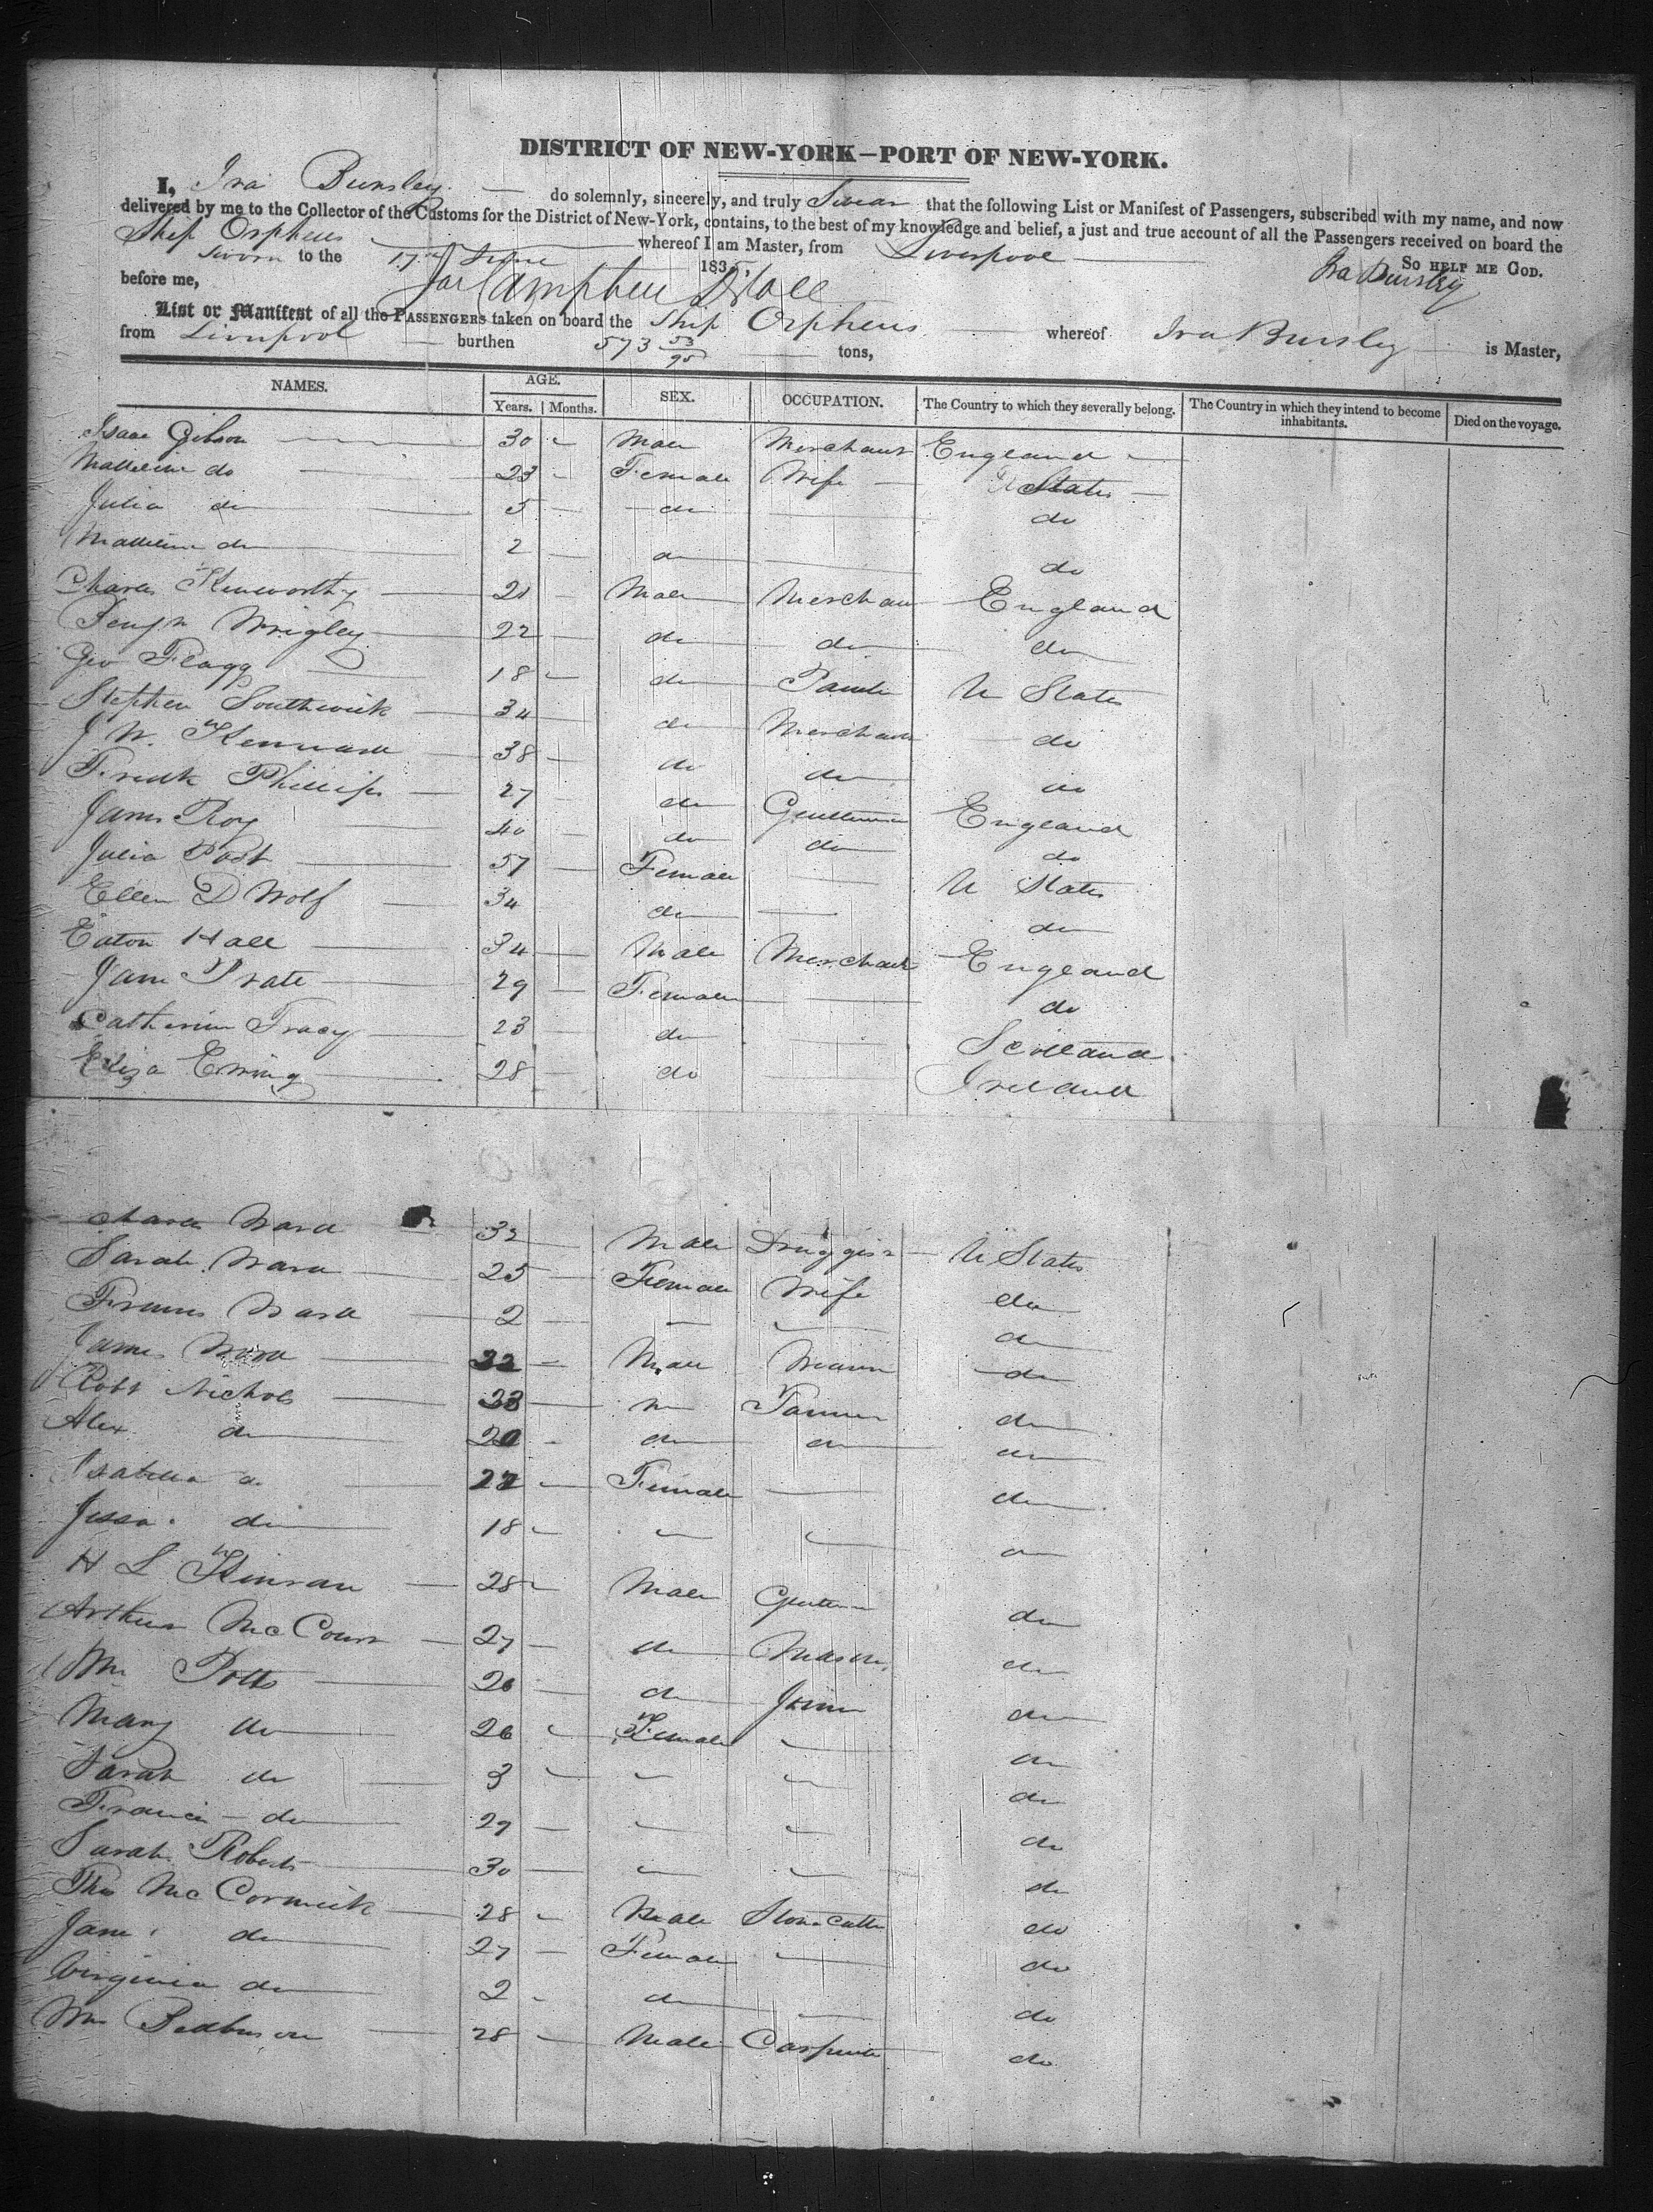 DISTRICT OF NEW-YORK—PORT OF NEW-YORK.
I, Ira Bursley do solemnly, sincerely, and truly Swear that the following List or Manifest of Passengers, subscribed with my name, and now
delivered by me to the Collector of the Customs for the District of New-York, contains, to the best of my knowledge and belief, a just and true account of all the Passengers received on board the
Ship Orpheus whereof I am Master, from Liverpool
So HELP ME GOD.
Sworn to the 17th June 1835, Ira Bursley
before me,
List or Manifest of all the PASSENGERS taken on board the Ship Orpheus whereof Ira Bursley is Master,
from Liverpool burthen 573 53/95 tons,
NAMES. AGE. Years. Months. SEX. OCCUPATION. The Country to which they severally belong. The Country in which they intend to become inhabitants. Died on the voyage.
Isaac Gibson 30 Male Merchant England
Madeline do 23 Female Wife U States
Julia do 5 do do
Madeline do 2 do do
Charles Kenworthy 21 Male Merchant England
Benjn Wrigley 22 do do do
Geo Flagg 18 do U States
Stephen Southwick 34 do Merchant do
J W. Kennard 38 do do do
Fredk Phillips 27 do Gentleman England
James Roy 40 do do do
Julia Post 57 Female U States
Ellen D Wolf 34 do do
Eaton Hall 34 Male Merchant England
Jane Prate 29 Female do
Catherine Tracy 23 do Scotland
Eliza Ewing 28 do Ireland
Charles Ward 32 Male Druggist U States
Sarah Ward 25 Female Wife do
Frances Ward 2 do
James Ward 22 Male do
Robt Nichols 23 do
Alex do 20 do do do
Isabella do 22 Female do
Jessa do 18 do
H L Kinsan 28 Male Gentleman do
Arthur McCourt 27 do Mason do
Wm Potts 26 do Joiner do
Mary do 26 Female do
Sarah do 3 do
Francis do 29 do
Sarah Roberts 30 do
Thos McCormick 28 Male Stone Cutter do
Jane do 27 Female do
Virginia do 2 do do
Wm 28 Male Carpenter do